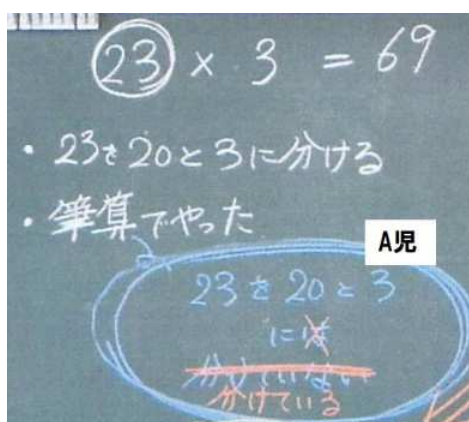 23 × 3 = 69
・23を20と3に分ける
・筆算でやった
A児
23を20と3
には
分けていない
分けている